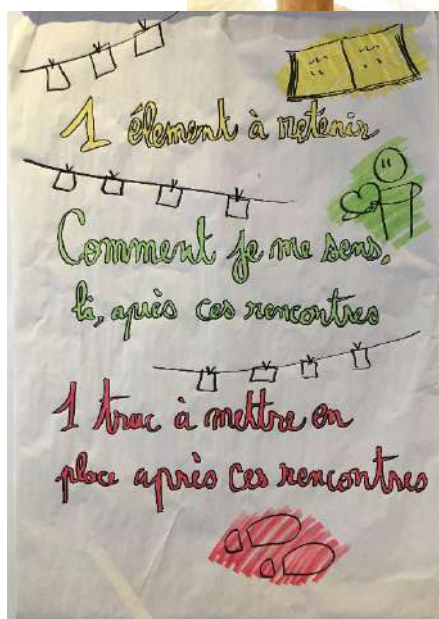 1 élement à retenir
Comment je me sens,
là, après ces rencontres
1 truc à mettre en
place après ces rencontres